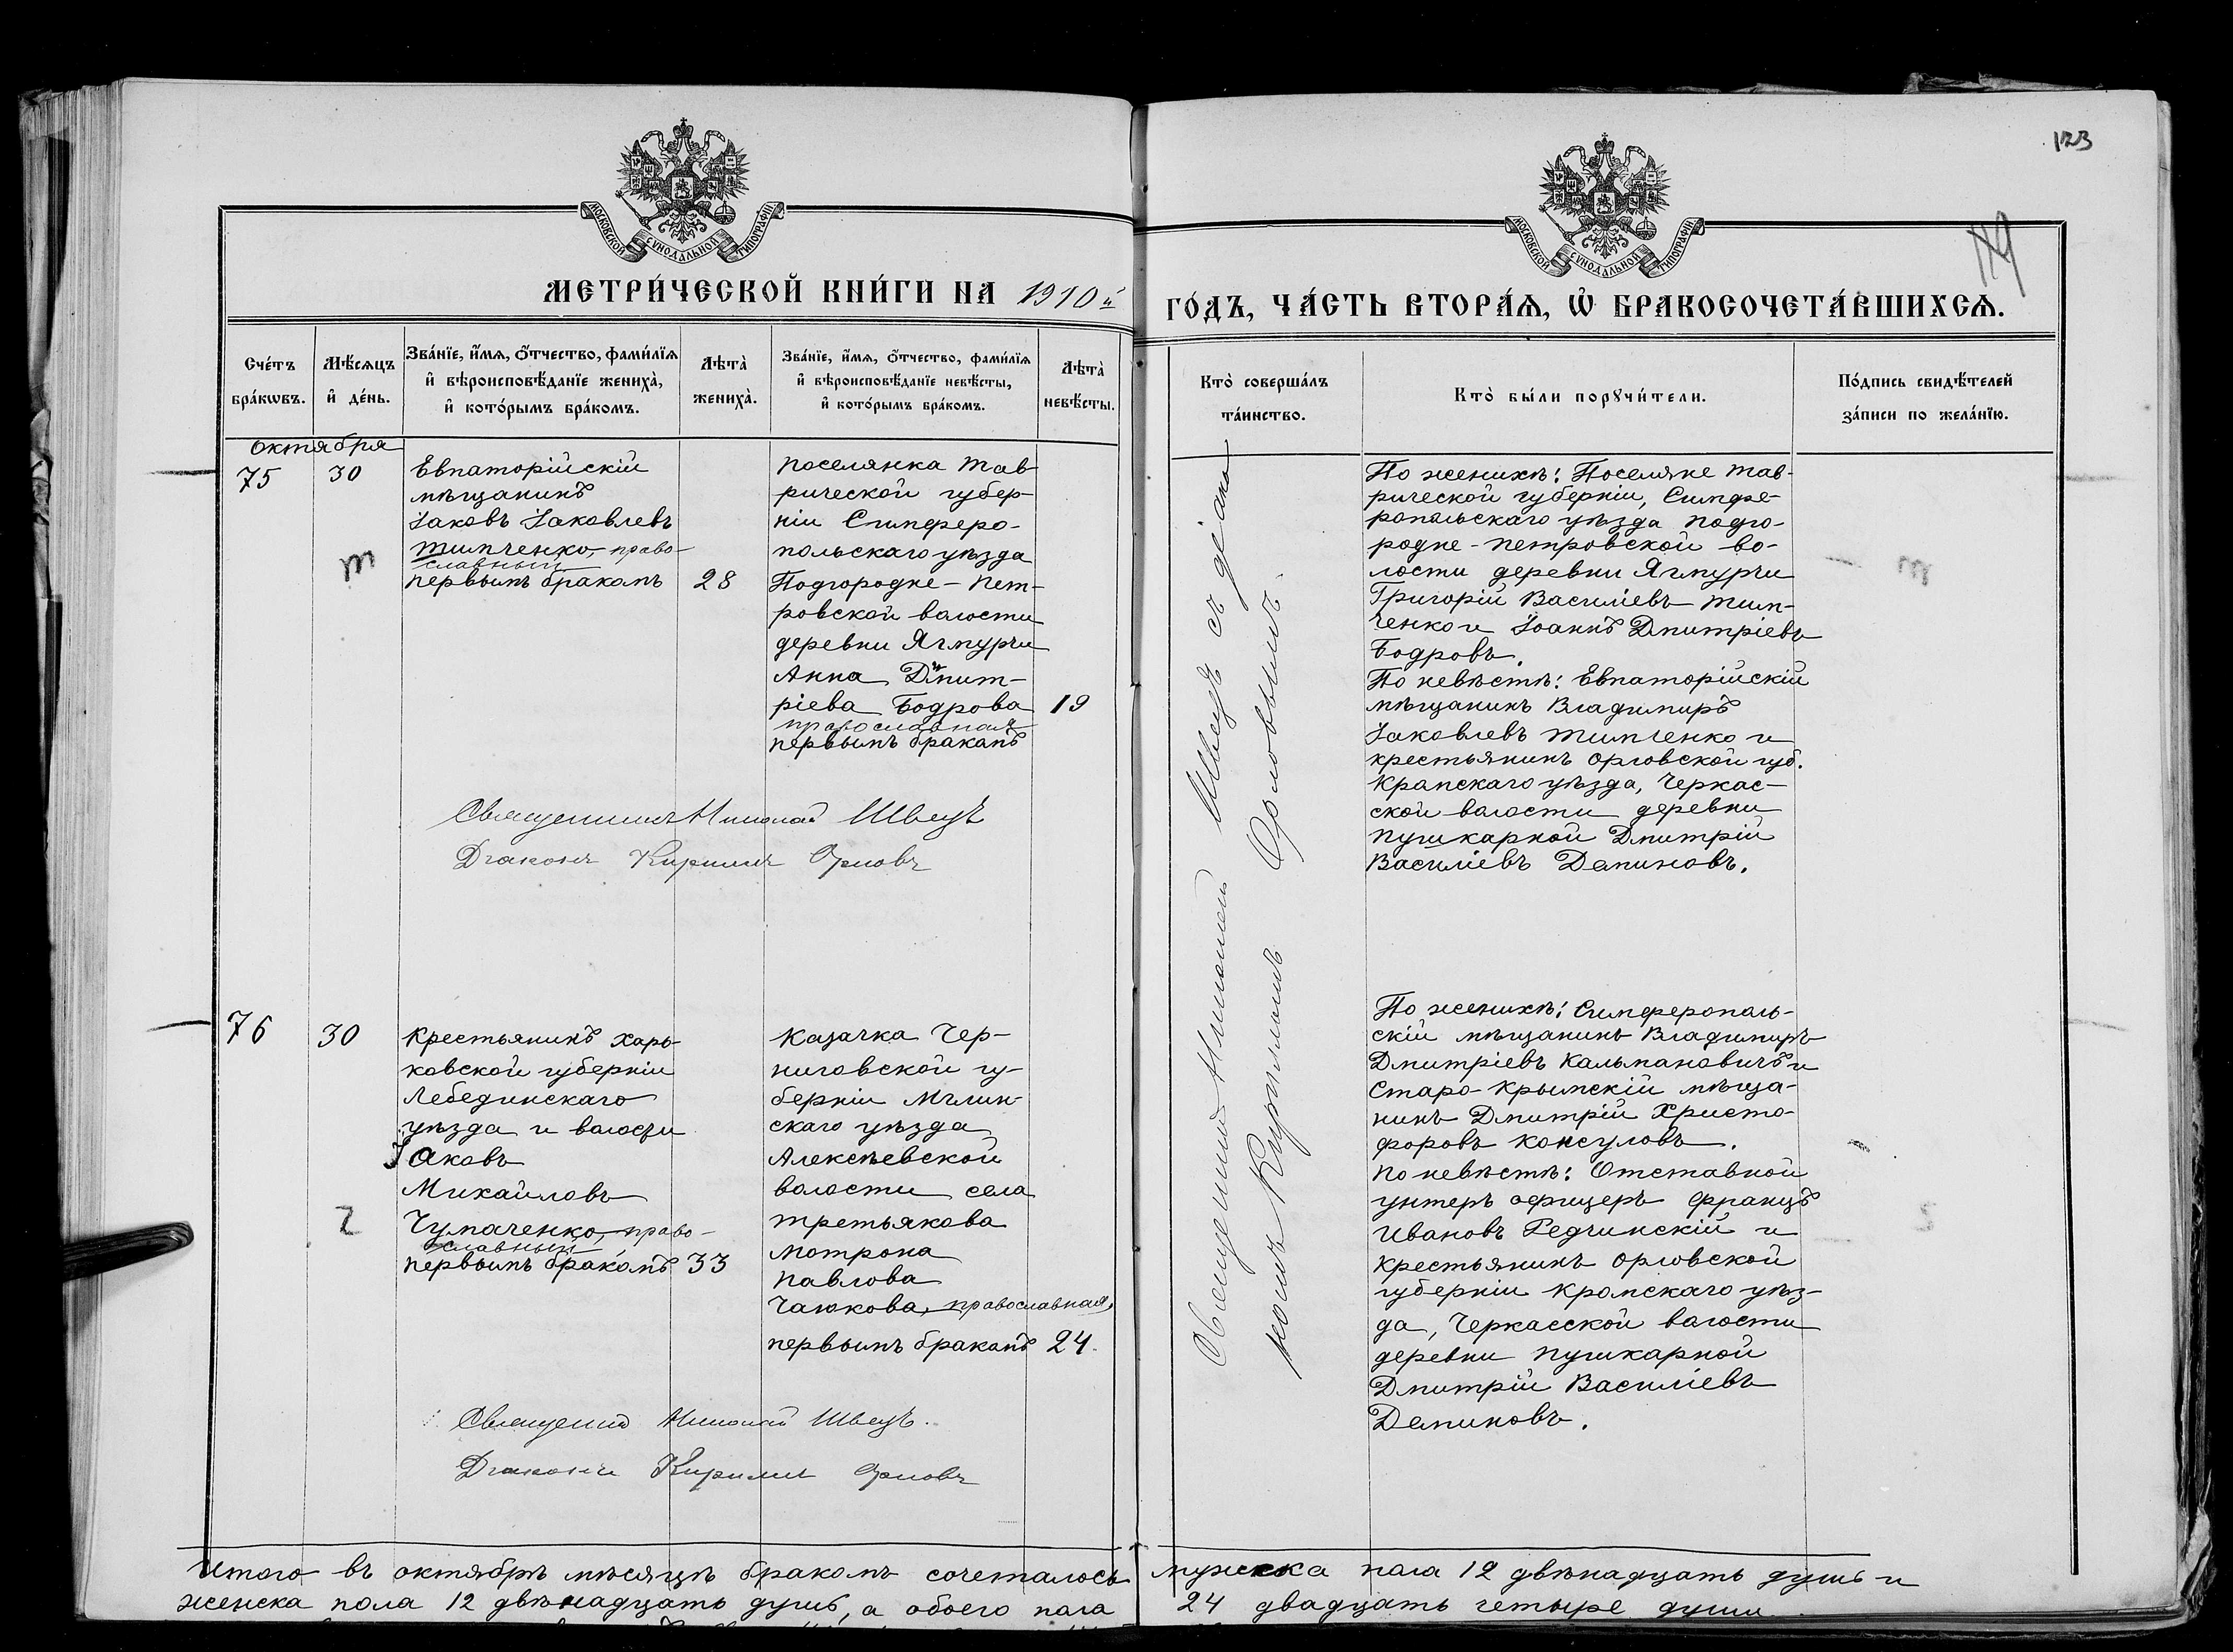 123
119
МОСКОВСКОЙ СУНОДАЛЬНОЙ ТИПОГРАФІИ
МОСКОВСКОЙ СУНОДАЛЬНОЙ ТИПОГРАФІИ
МЕТРИ́ЧЕСКОЙ КНИ́ГИ НА 1910й
ГО́ДЪ, ЧА́СТЬ ВТОРА́Ѧ, Ѡ҆ БРАКОСОЧЕТА́ВШИХСѦ.
Сче́тъ
бра́кѡвъ.
Мѣ́сѧцъ
и҆ де́нь.
Зва́нїе, и҆́мѧ, ѻ҆́тчество, фами́лїѧ
и҆ вѣроисповѣ́данїе жениха̀,
и҆ кото́рымъ бра́комъ.
Лѣта̀
жениха̀.
Зва́нїе, и҆́мѧ, ѻ҆́тчество, фами́лїѧ
и҆ вѣроисповѣ́данїе невѣ́сты,
и҆ кото́рымъ бра́комъ.
Лѣта̀
невѣ́сты.
Кто̀ соверша́лъ
та́инство.
Кто̀ бы́ли порꙋчи́тели.
По́дпись свидѣ́телей
за́писи по жела́нїю.
Октября
75
30
Евпаторійскій
мѣщанинъ
Іаковъ Іаковлевъ
Тимченко, право-
славный
первымъ бракомъ
28
т
Поселянка Тав-
рической губер-
ніи Симферо-
польскаго уѣзда
Подгородне-Пет-
ровской волости
деревни Ягмурчи
Анна Димит-
ріева Бодрова
православная
первымъ бракомъ
19
Священникъ Николай Швецъ
Діаконъ Кириллъ Орловъ
Священникъ Николай Швецъ съ діако-
номъ Кирилломъ Орловымъ.
По женихѣ: Поселяне Тав-
рической губерніи, Симфе-
ропольскаго уѣзда Подго-
родне-Петровской во-
лости деревни Ягмурчи
Григорій Василіевъ Тим-
ченко и Іоаннъ Дмитріевъ
Бодровъ.
По невѣстѣ: Евпаторійскій
мѣщанинъ Владимиръ
Іаковлевъ Тимченко и
крестьянинъ Орловской губ.
Кромскаго уѣзда, Черкас-
ской волости деревни
Пушкарной Дмитрій
Василіевъ Деминовъ.
76
30
Крестьянинъ Харь-
ковской губерніи
Лебединскаго
уѣзда и волости
Іаковъ
Михайловъ
Чумаченко, право-
славный
первымъ бракомъ
33
2
Казачка Чер-
ниговской гу-
берніи Мглин-
скаго уѣзда
Алексѣевской
волости села
Третьякова
Мотрона
Павлова
Чаюкова, православная,
первымъ бракомъ
24.
Священникъ Николай Швецъ.
Діаконъ Кириллъ Орловъ
По женихѣ: Симферополь-
скій мѣщанинъ Владимиръ
Дмитріевъ Кальмановичъ и
Старо-Крымскій мѣща-
нинъ Дмитрій Христо-
форовъ Консуловъ.
По невѣстѣ: Отставной
унтеръ офицеръ Францъ
Ивановъ Редчинскій и
крестьянинъ Орловской
губерніи Кромскаго уѣз-
да, Черкасской волости
деревни Пушкарной
Дмитрій Василіевъ
Деминовъ.
Итого въ октябрѣ мѣсяцѣ бракомъ сочеталось мужеска пола 12 двѣнадцать душъ и
женска пола 12 двѣнадцать душъ, а обоего пола 24 двадцать четыре души.